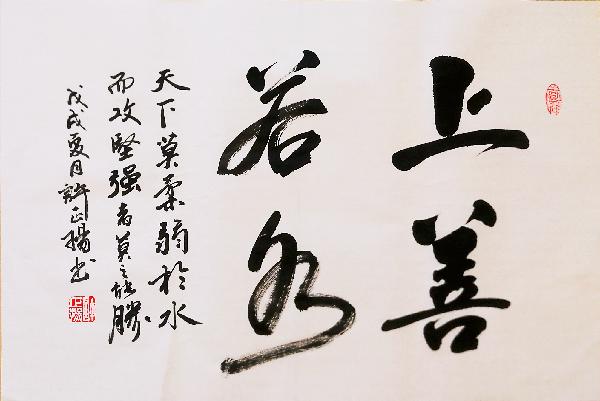 上善
若水
天下莫柔弱於水
而攻堅强者莫之能勝
戊戌夏月許正楊书